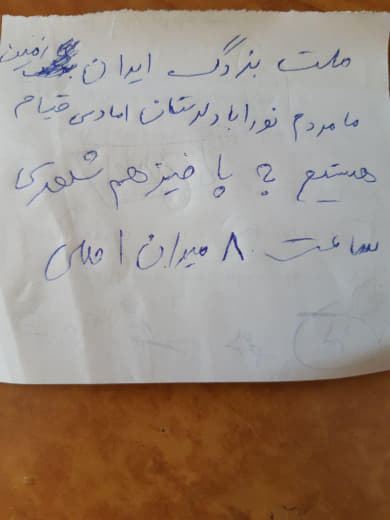 ملت بزرگ ایران زمین
ما مردم نورآباد لرستان امادی قیام
هستیم به پا خیز هم شهری
ساعت ۸ میدان اصلی